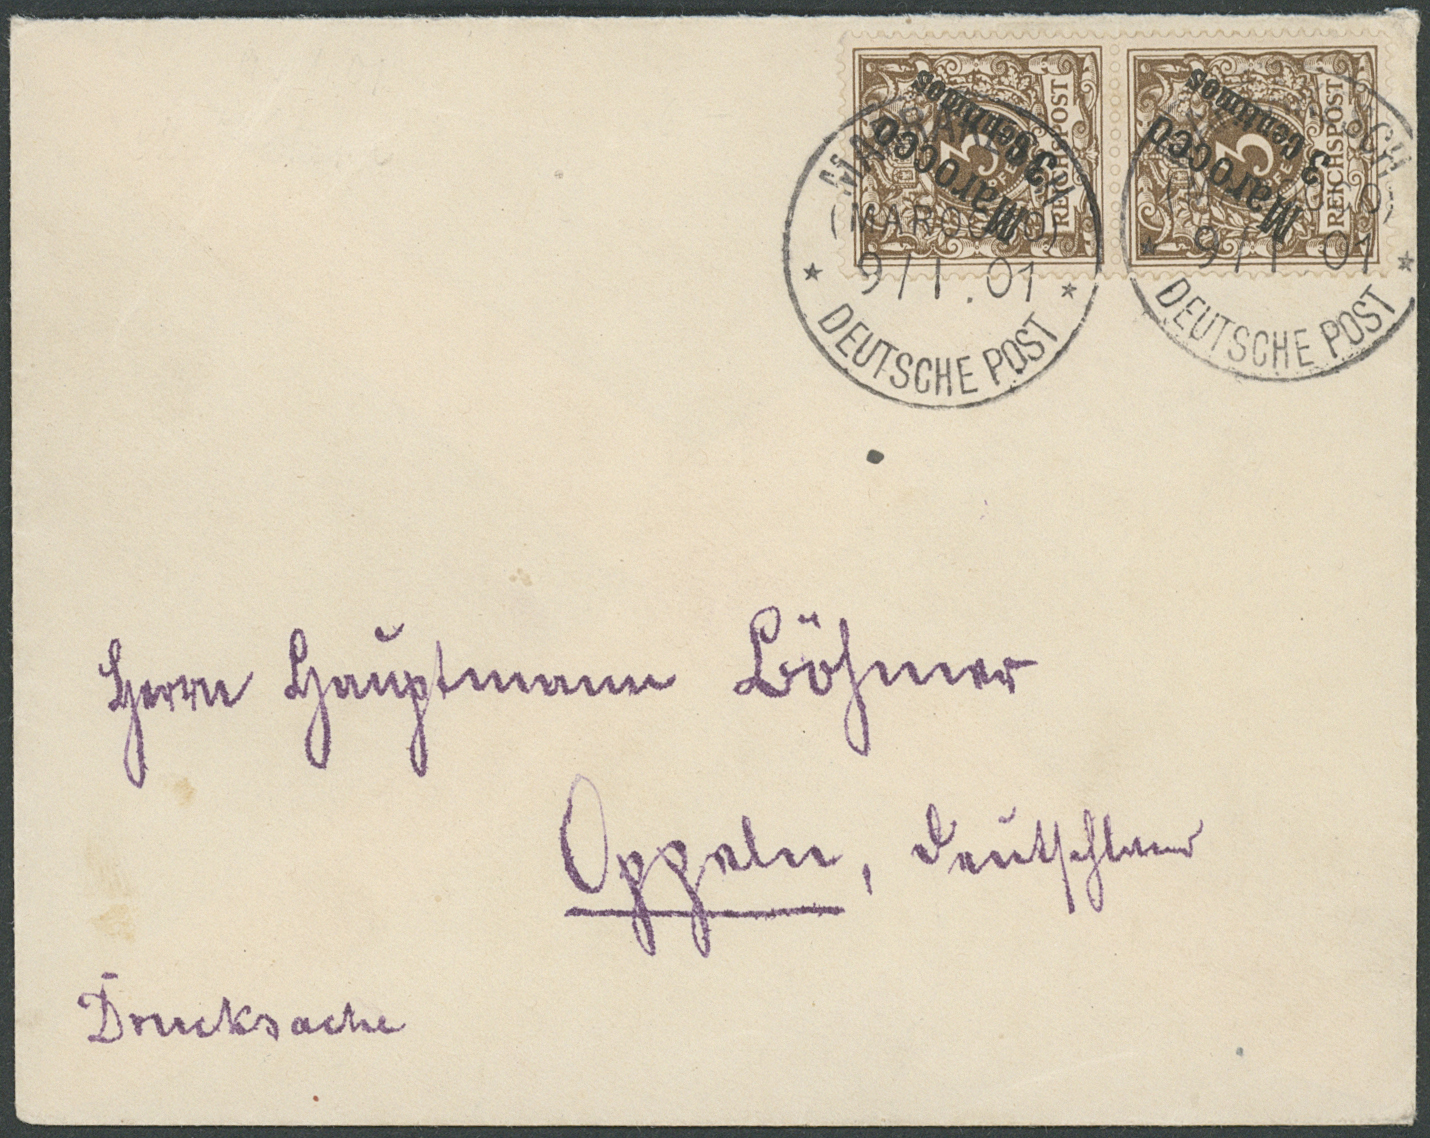 REICHSPOST
3
Marocco
3 Centimos
REICHSPOST
3
Marocco
3 Centimos
MARRAKESCH
(MAROCCO)
9/1.01
* DEUTSCHE POST *
9/1 01
* DEUTSCHE POST *
Herrn Hauptmann Böhmer
Oppeln, Deutschland
Drucksache